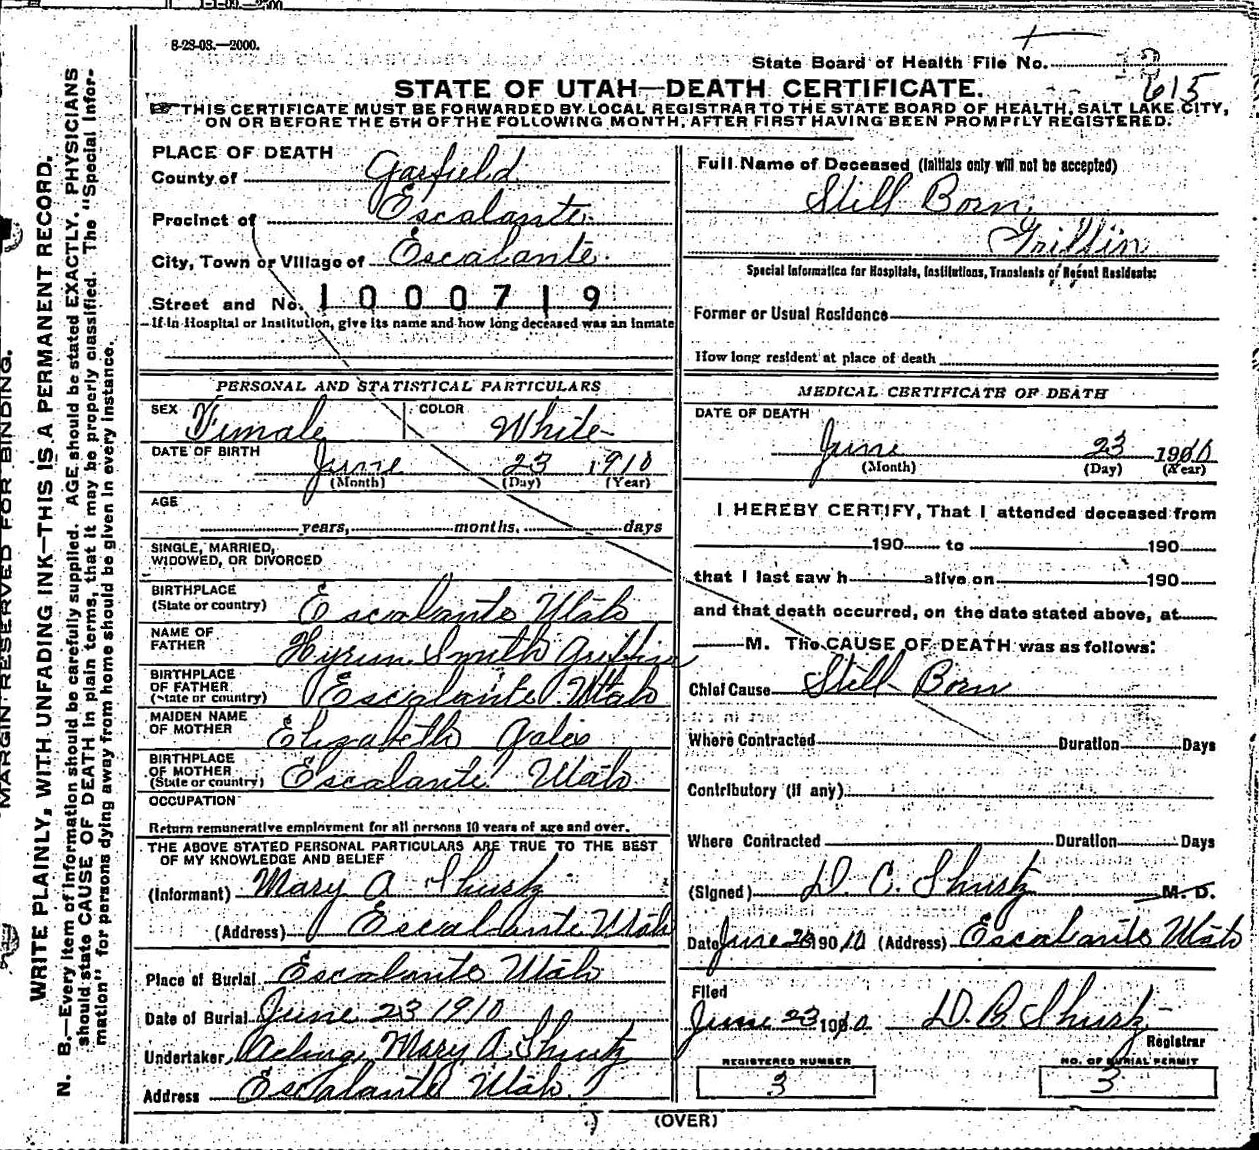 1-1-09.—2500
8-28-08.—2000.
State Board of Health File No.
615
STATE OF UTAH—DEATH CERTIFICATE.
THIS CERTIFICATE MUST BE FORWARDED BY LOCAL REGISTRAR TO THE STATE BOARD OF HEALTH, SALT LAKE CITY,
ON OR BEFORE THE 5TH OF THE FOLLOWING MONTH, AFTER FIRST HAVING BEEN PROMPTLY REGISTERED.
MARGIN RESERVED FOR BINDING.
WRITE PLAINLY, WITH UNFADING INK—THIS IS A PERMANENT RECORD.
N. B.—Every item of information should be carefully supplied. AGE should be stated EXACTLY. PHYSICIANS
should state CAUSE OF DEATH in plain terms, that it may be properly classified. The "Special Infor-
mation" for persons dying away from home should be given in every instance.
PLACE OF DEATH
County of Garfield
Precinct of Escalante
City, Town or Village of Escalante
Street and No. 1000719
If in Hospital or Institution, give its name and how long deceased was an inmate
PERSONAL AND STATISTICAL PARTICULARS
SEX Female COLOR White
DATE OF BIRTH June 23 1910
(Month) (Day) (Year)
AGE
years, months. days
SINGLE, MARRIED,
WIDOWED, OR DIVORCED
BIRTHPLACE
(State or country) Escalante Utah
NAME OF
FATHER Hyrum Smith Griffin
BIRTHPLACE
OF FATHER
(State or country) Escalante Utah
MAIDEN NAME
OF MOTHER Elizabeth
BIRTHPLACE
OF MOTHER
(State or country) Escalante Utah
OCCUPATION
Return remunerative employment for all persons 10 years of age and over.
THE ABOVE STATED PERSONAL PARTICULARS ARE TRUE TO THE BEST
OF MY KNOWLEDGE AND BELIEF
(Informant) Mary A Shurtz
(Address) Escalante Utah
Place of Burial Escalante Utah
Date of Burial June 23 1910
Undertaker, Acting, Mary A. Shurtz
Address Escalante Utah.
Full Name of Deceased (Initials only will not be accepted)
Still Born
Griffin
Special Information for Hospitals, Institutions, Transients or Recent Residents:
Former or Usual Residence
How long resident at place of death
MEDICAL CERTIFICATE OF DEATH
DATE OF DEATH
June 23 1910
(Month) (Day) (Year)
I HEREBY CERTIFY, That I attended deceased from
190 to 190
that I last saw h alive on 190
and that death occurred, on the date stated above, at
M. The CAUSE OF DEATH was as follows:
Chief Cause Still Born
Where Contracted Duration Days
Contributory (if any)
Where Contracted Duration Days
(Signed) D. C. Shurtz M. D.
Date June 190 10 (Address) Escalante Utah
Filed
June 23 1910 D. B. Shurtz
Registrar
REGISTERED NUMBER
3
NO. OF BURIAL PERMIT
3
(OVER)